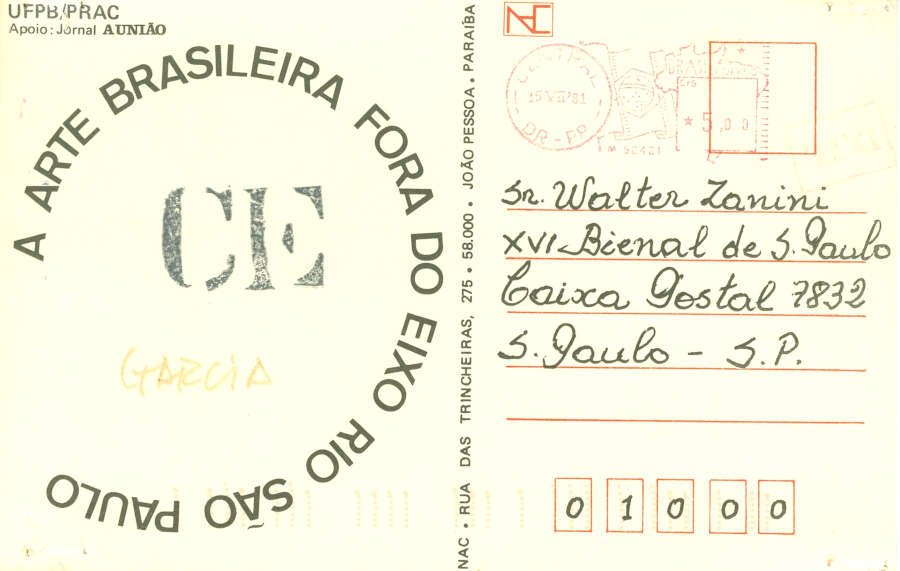 UFPB/PRAC
Apoio: Jornal A UNIÃO
A ARTE BRASILEIRA FORA DO EIXO RIO SÃO PAULO
CE
GARCIA
NAC • RUA DAS TRINCHEIRAS, 275 • 58.000 • JOÃO PESSOA • PARAÍBA
CENTRAL
DR-PP
5,00
Sr. Walter Zanini
XVI Bienal de S. Paulo
Caixa Postal 7832
S. Paulo - S.P.
01000